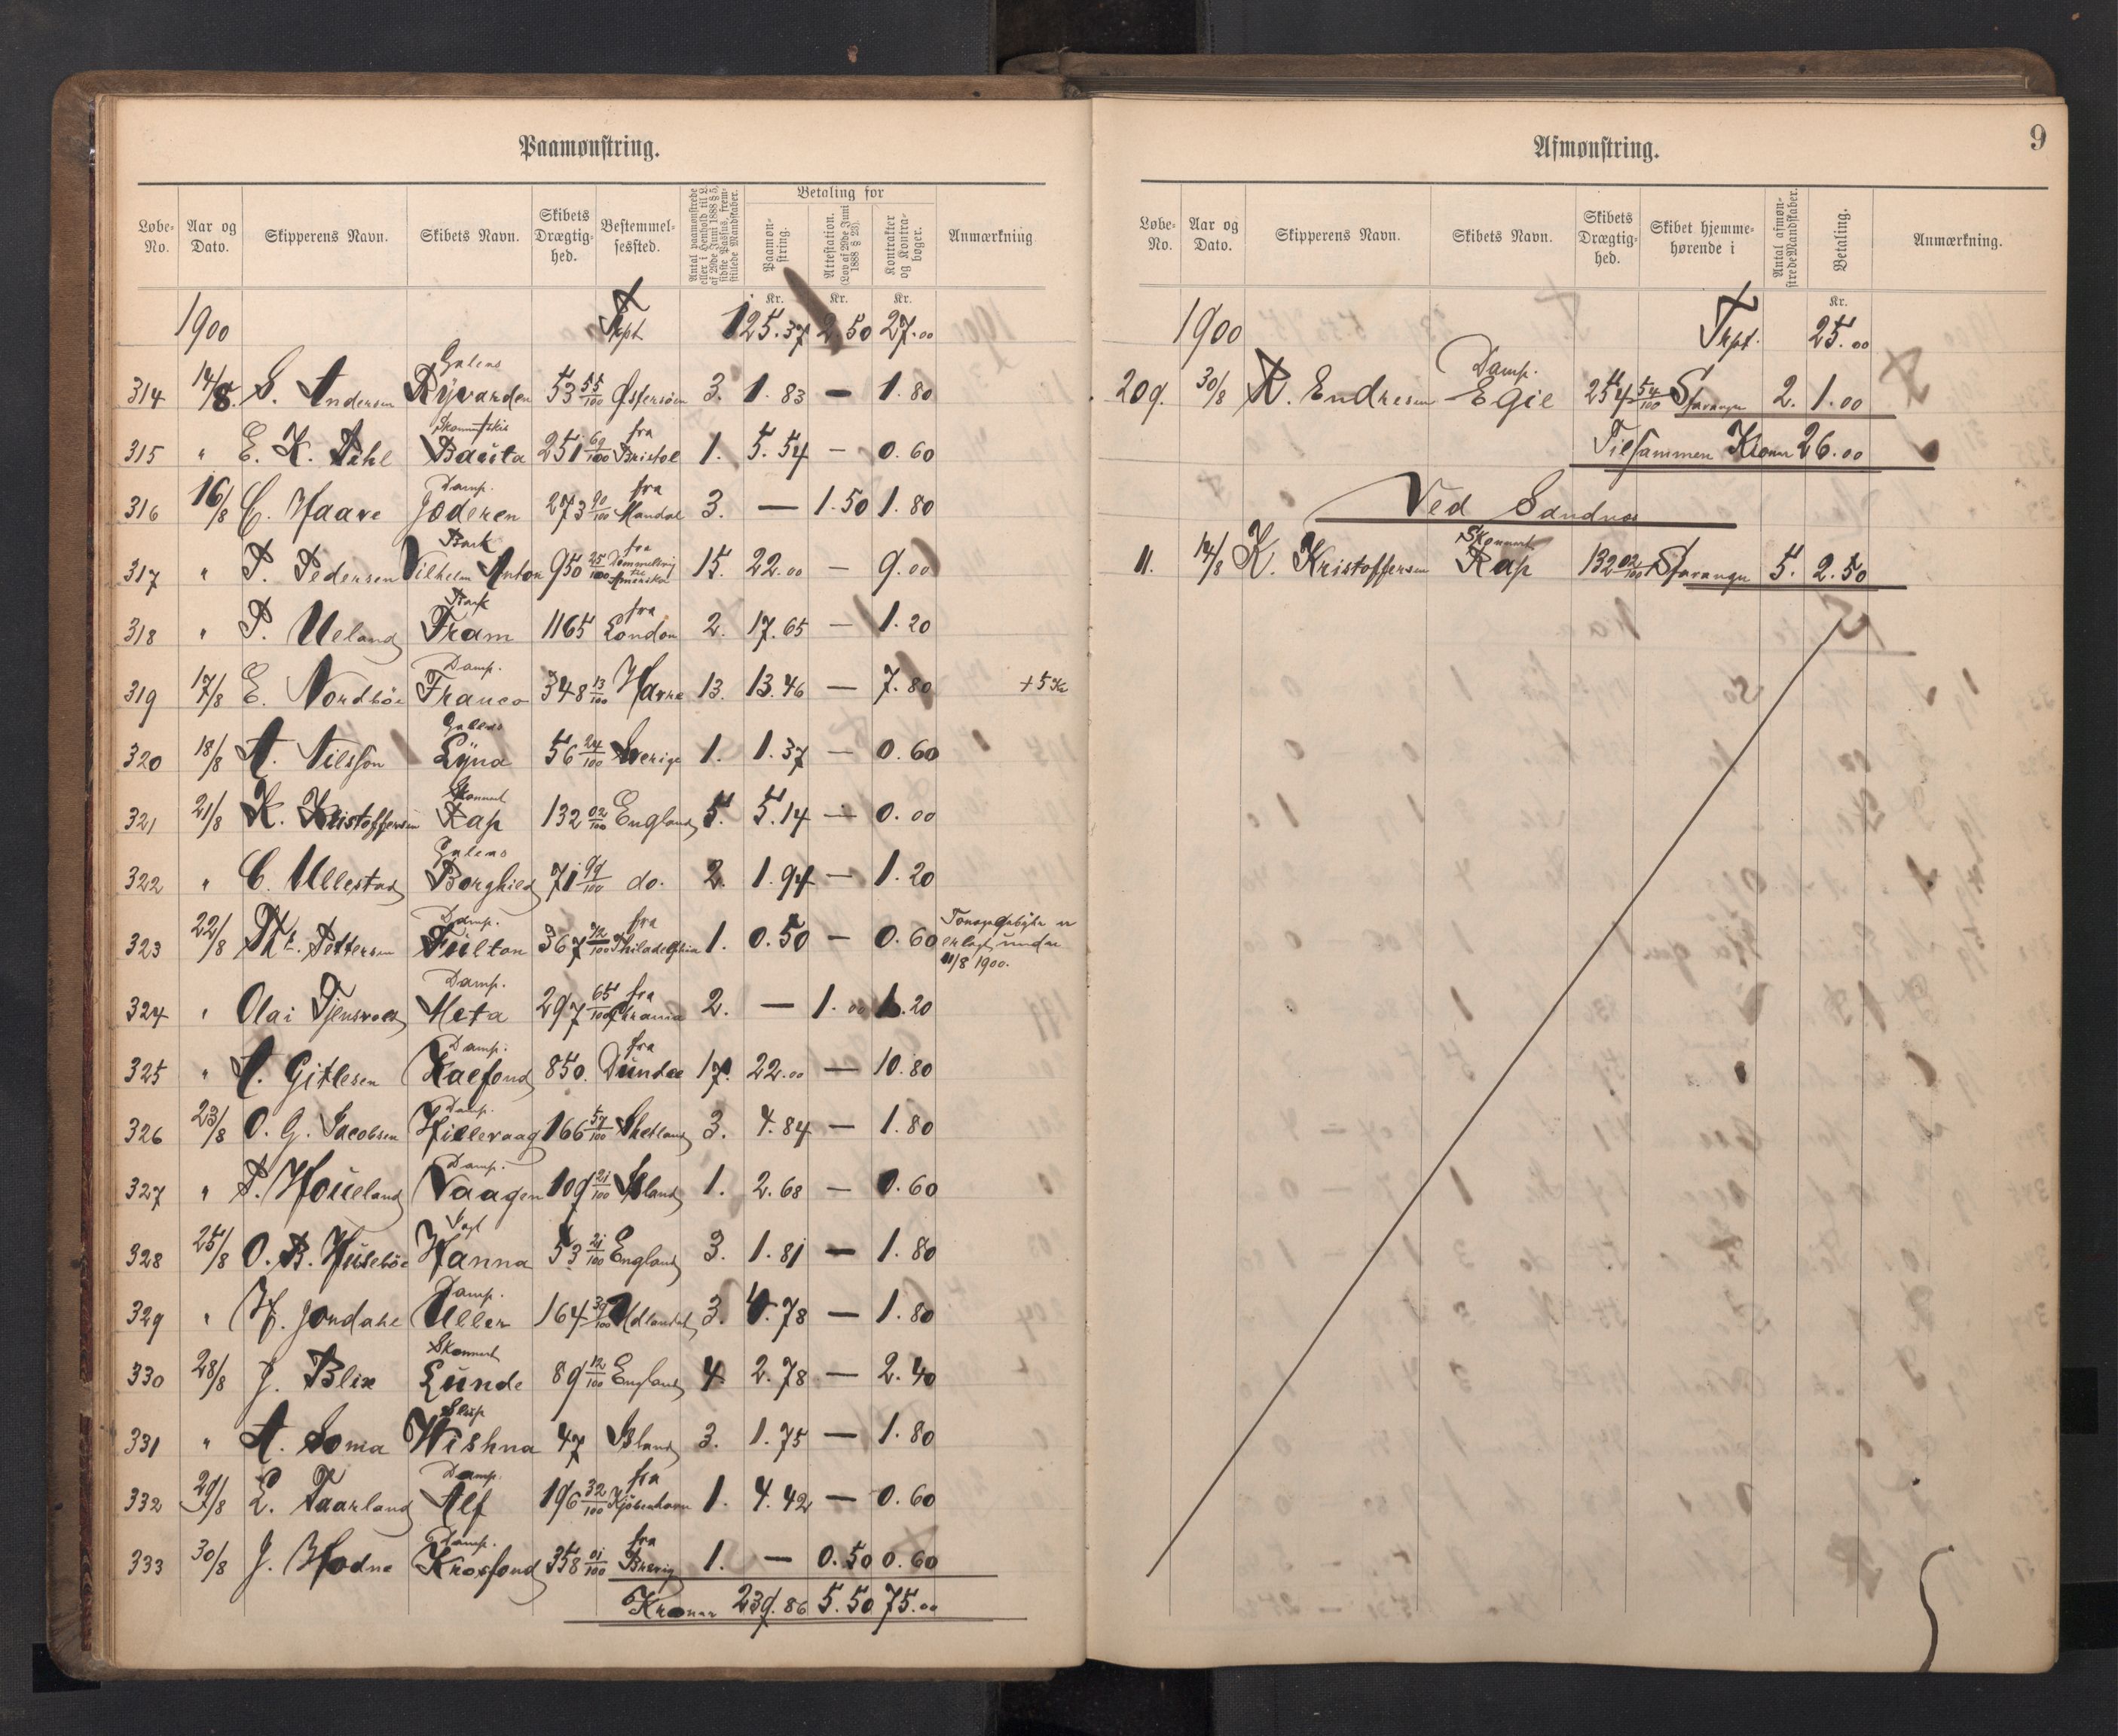 Paamønstring.
Løbe-No. Aar og Dato. Skipperens Navn. Skibets Navn. Skibets Drægtig-hed. Bestemmel-sessted. Antal paamønstrede eller i Henhold til L. af 29de Juni 1888 § 5, sidste Passus, frem-stillede Mandskaber. Betaling for Paamøn-string. Attestation. (Lov af 29de Juni 1888 § 23). Kontrakter og Kontra-bøger. Anmærkning
Kr. Kr. Kr.
1900 Trpt 125.37 2.50 27.00
314 14/8. S. Andersen Galeas Ryvarden 53 55/100 Østersöen 3. 1.83 — 1.80
315 " E. K. Dahl Bauta 251 69/100 fra Bristol 1. 5.54 — 0.60
316 16/8 C. Haave Damp. Jæderen 273 90/100 fra Mandal 3. — 1.50 1.80
317 " P. Pedersen Bark Vilhelm Anton 950 25/100 fra 15. 22.00 — 9.00
318 " P. Ueland Bark Fram 1165 fra London 2. 17.65 — 1.20
319 17/8 E. Nordböe Damp. Franco 348 13/100 Havre 13. 13.46 — 7.80 + 5 Kr
320 18/8 A. Nilsson Galeas Lyna 56 24/100 Sverige 1. 1.37 — 0.60
321 21/8 K. Kristoffersen Skonnert Rap 132 02/100 England 5. 5.14 — 0.00
322 " C. Ullestad Galeas Borghild 71 99/100 do. 2. 1.94 — 1.20
323 22/8 Th. Pettersen Damp. Fulton 367 72/100 fra Philadelphia 1. 0.50 — 0.60 Tonnagegebyhr er erlagt under 11/8 1900.
324 " Olai Tjensvold Damp. Meta 297 65/100 fra Chrania 2. — 1.00 1.20
325 " A. Gitlesen Damp. Kaefond 850. fra Dundee 17. 22.00 — 10.80
326 23/8 O. G. Jacobsen Damp. Hillevaag 166 57/100 Shetland 3. 4.84 — 1.80
327 " P. Houeland Damp. Vaagen 109 21/100 Island 1. 2.68 — 0.60
328 25/8 O. B. Huseböe Jagt Hanna 53 21/100 England 3. 1.81 — 1.80
329 " H. Jondahl Damp. Uller 164 39/100 Udlandet 3. 4.78 — 1.80
330 28/8 J. Blix Skonnert Lunde 89 12/100 England 4 2.78 — 2.40
331 " A. Soma Slup Wishna 47 Island 3. 1.75 — 1.80
332 29/8 L. Taarland Damp. Alf 196 32/100 fra Kjöbenhavn 1. 4.42 — 0.60
333 30/8 J. Hodne Damp. Krosfond 358 01/100 fra Brevig 1. — 0.50 0.60
Kroner 239.86 5.50 75.00
Afmønstring.
9
Løbe-No. Aar og Dato. Skipperens Navn. Skibets Navn. Skibets Drægtig-hed. Skibet hjemme-hørende i Antal afmøn-strede Mandskaber. Betaling. Anmærkning.
Kr.
1900 Trpt. 25.00
209. 30/8 R. Endresen Damp. Egil 254 54/100 Stavanger 2. 1.00
Tilsammen Kroner 26.00
Ved Sandnes
11. 14/8 K. Kristoffersen Skonnert Rap 132 02/100 Stavanger 5. 2.50